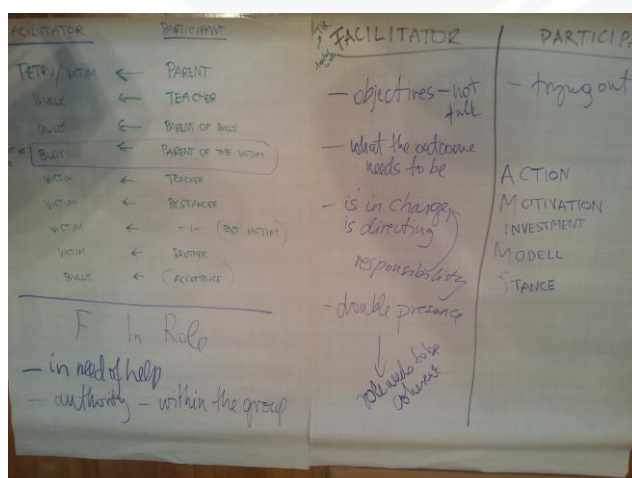 FACILITATOR PARTICIPANT
PETRU/VICTIM ← PARENT
BULLY ← TEACHER
BULLY ← PARENT OF BULLY
BULLY ← PARENT OF THE VICTIM
VICTIM ← TEACHER
VICTIM ← BYSTANDER
VICTIM ← -1- (PAST VICTIM)
VICTIM ← BROTHER
BULLY ← (ACCOMPLICE)
F In Role
- in need of help
- authority - within the group
TR
FACILITATOR
- objectives - not
- what the outcome
needs to be
- is in charge,
is directing
responsibility
- double presence
role needs to be
coherent
PARTICIPA
- trying out
ACTION
MOTIVATION
INVESTMENT
MODELL
STANCE